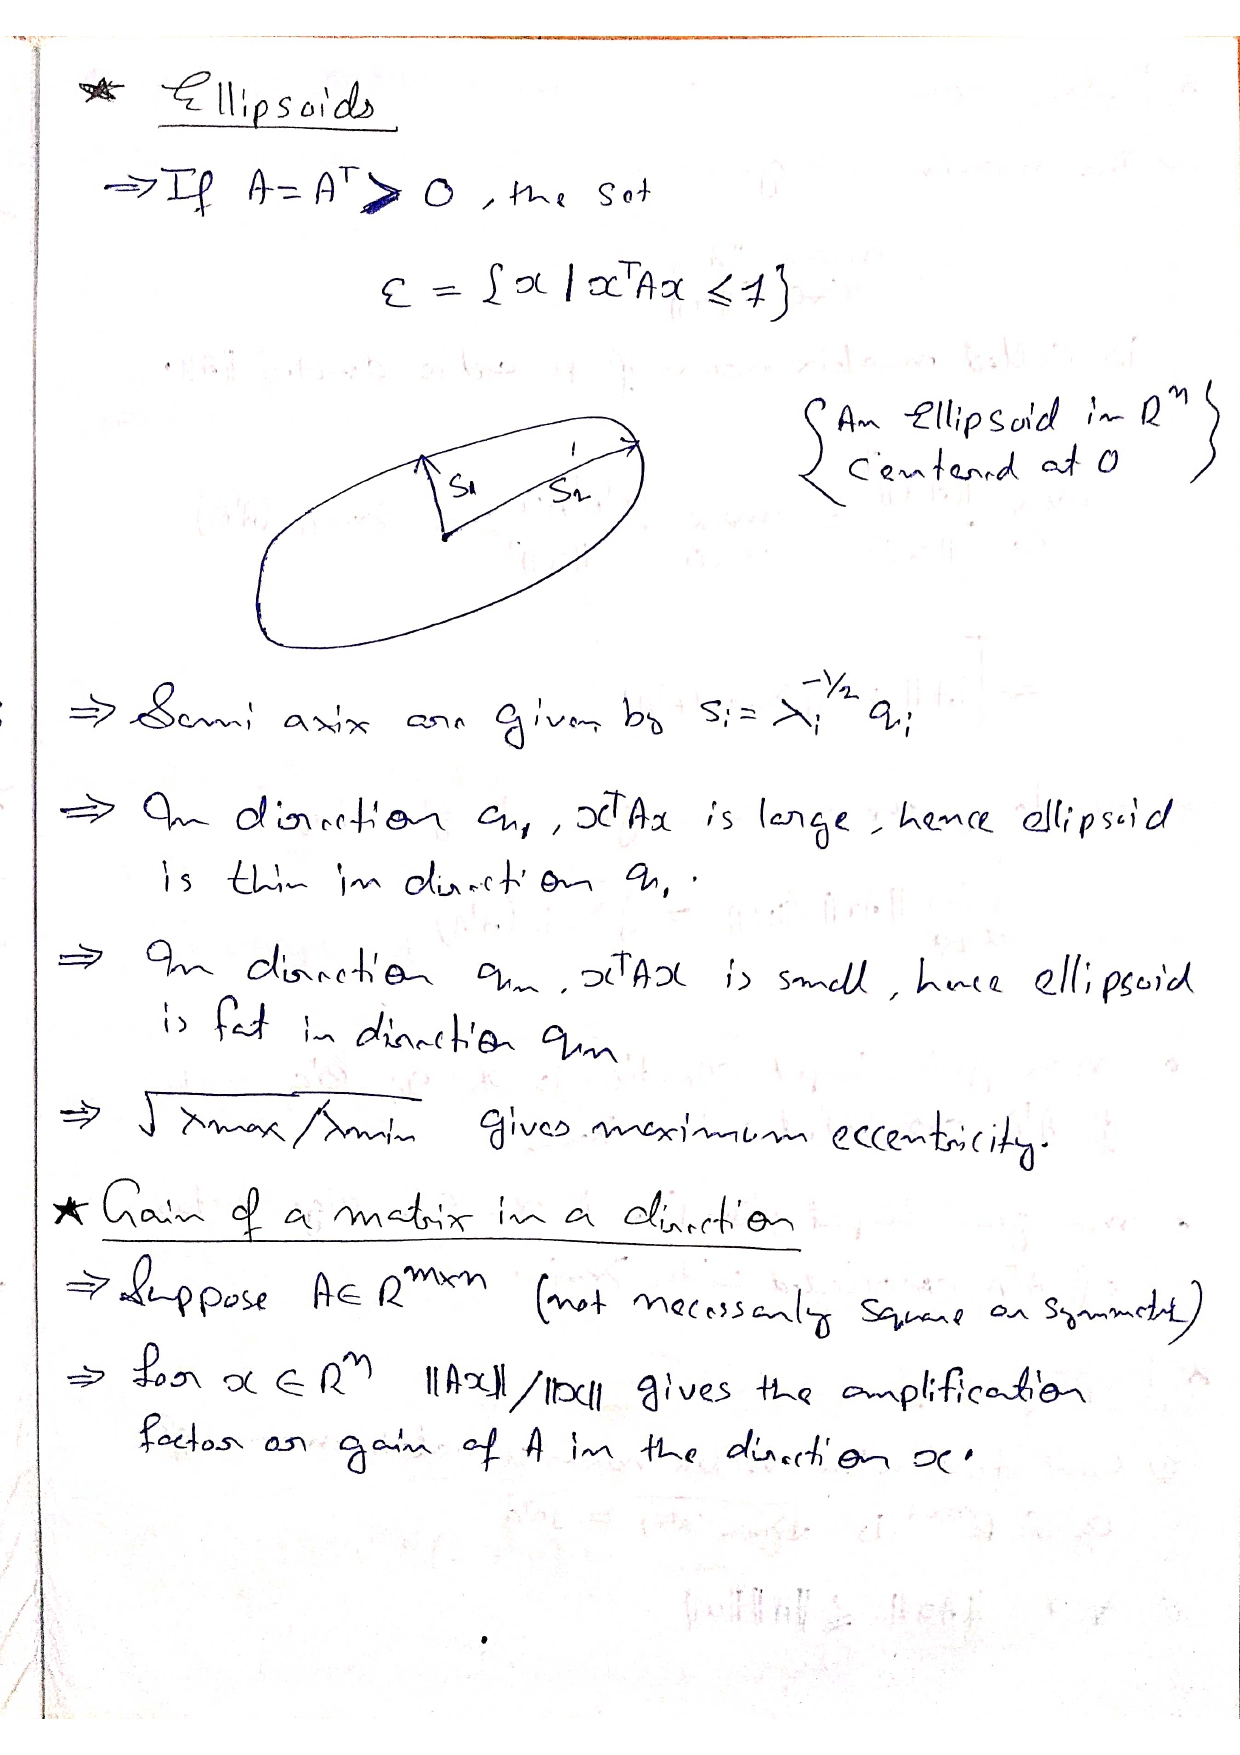 ★ Ellipsoids
⇒ If A = Aᵀ > 0, the set
ε = {x | xᵀAx ≤ 1}
{An Ellipsoid in Rⁿ
centered at 0}
s₁
s₂
⇒ Semi axix are given by sᵢ = λᵢ^(-1/2) qᵢ
⇒ In direction q₁, xᵀAx is large, hence ellipsoid
is thin in direction q₁.
⇒ In direction qₙ, xᵀAx is small, hence ellipsoid
is fat in direction qₙ
⇒ √(λmax/λmin) gives maximum eccentricity.
★ Gain of a matrix in a direction
⇒ Suppose A ∈ R^(m×n) (not necessarily square or symmetric)
⇒ for x ∈ Rⁿ ||Ax||/||x|| gives the amplification
factor or gain of A in the direction x.